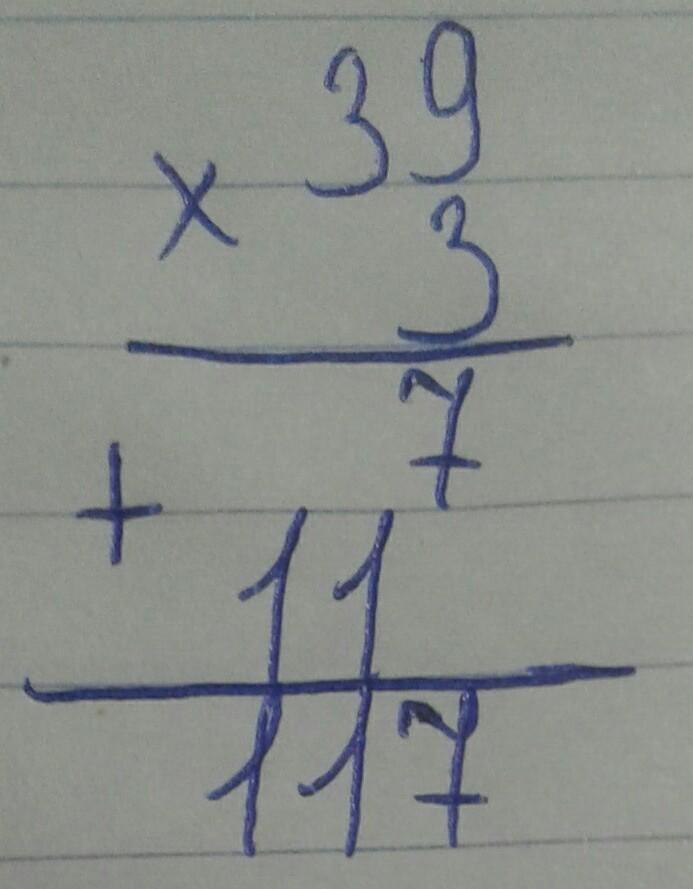 39
× 3
7
+
11
117